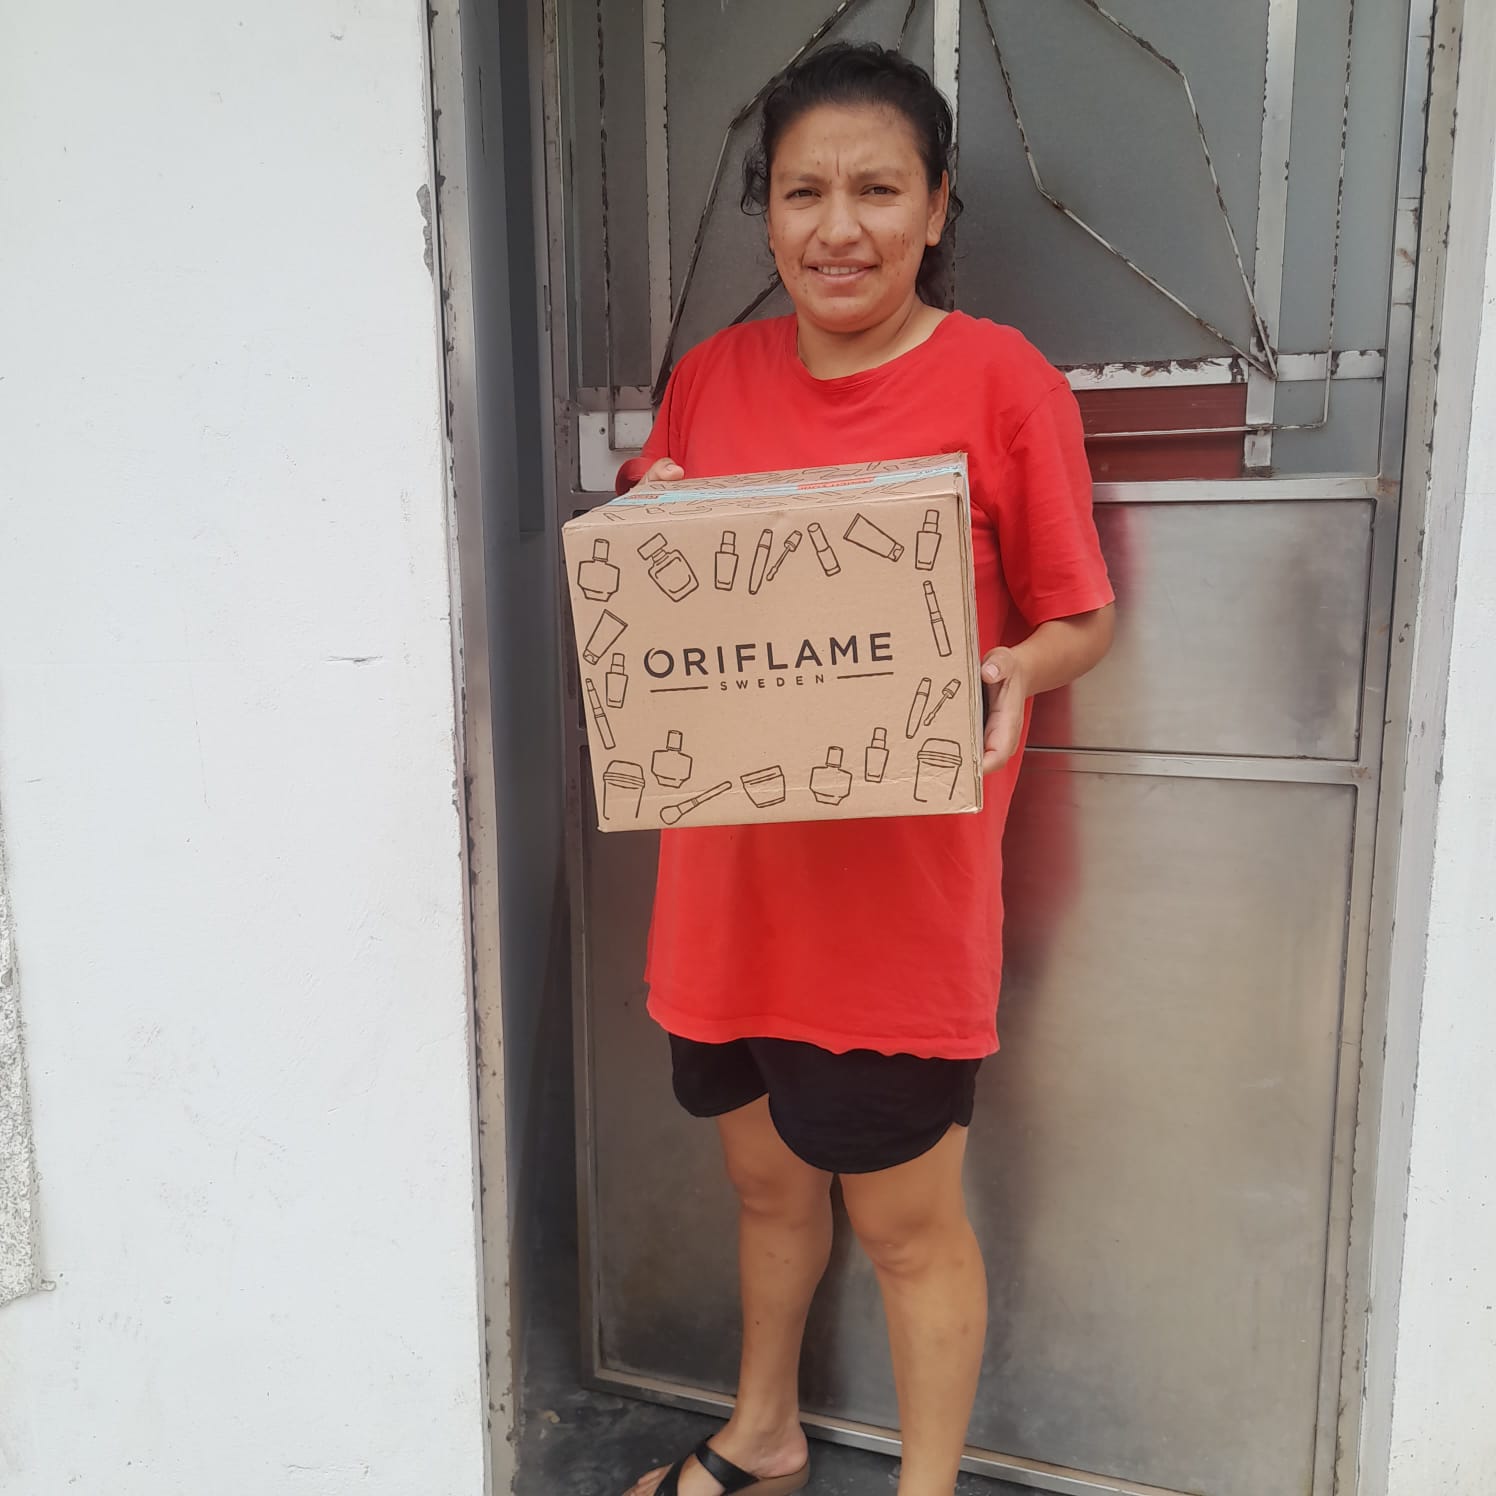 ORIFLAME
SWEDEN